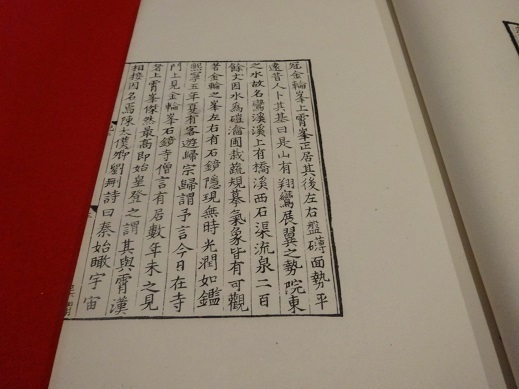 冠金輪峯上霄峯正居其後左右盤礴面勢平
遠昔人卜其基曰是山有翔鸞展翼之勢院東
之水故名鸞溪溪上有橋溪西石渠流泉二百
餘丈因水為磑瀹圃栽蔬規摹氣象皆有可觀
者金輪之峯左右有石鏡隱現無時光潤如鑑
熙寧五年夏有客遊歸宗歸謂予言今日在寺
門上見金輪峯石鏡寺僧言有居數年未之見
者上霄峯傑然最高即始皇登之謂其與霄漢
相接因名焉陳大僕卿劉刪詩曰秦始瞰宇宙